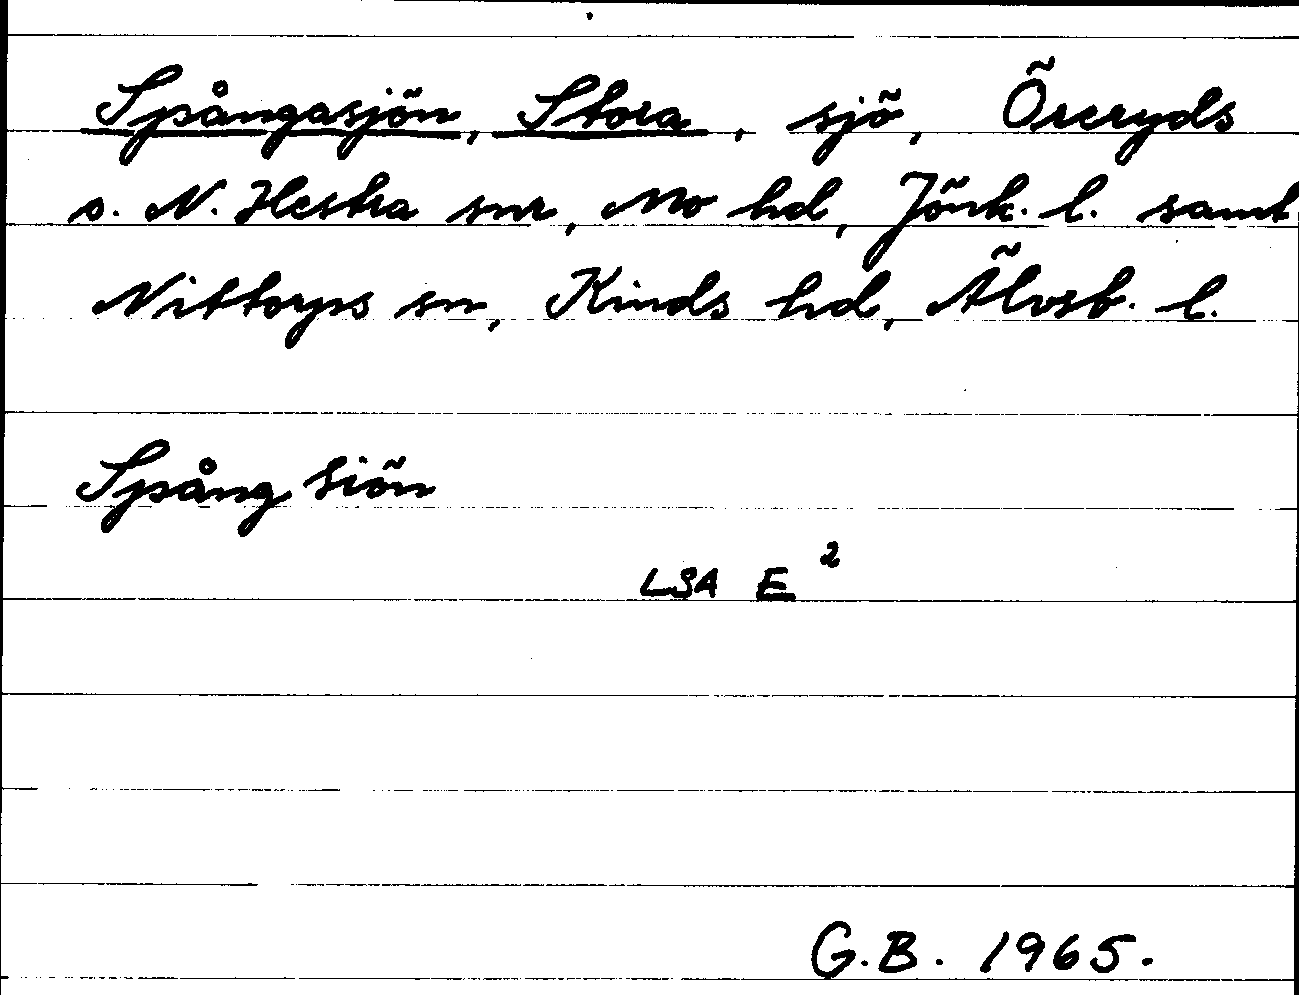 Spångasjön, Stora, sjö, Öreryds
o. N. Hestra snr, Mo hd, Jönk. l. samt
Nittorps sn, Kinds hd, Älvsb. l.
Spång Siön
LSA E 2
G.B. 1965.